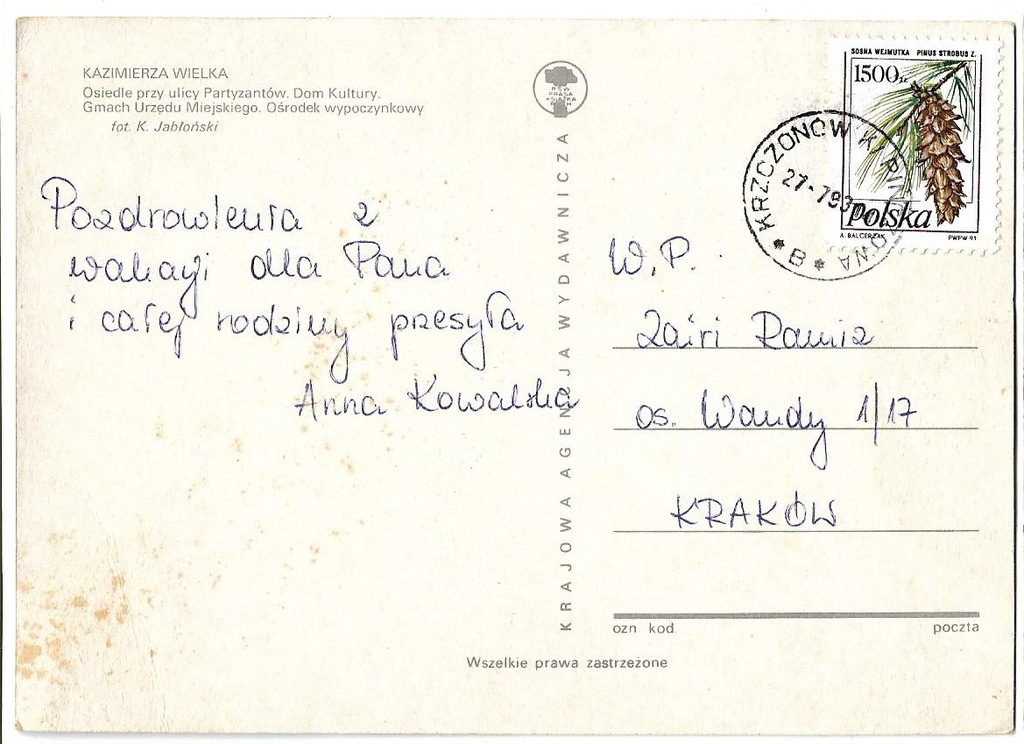 KAZIMIERZA WIELKA
Osiedle przy ulicy Partyzantów. Dom Kultury.
Gmach Urzędu Miejskiego. Ośrodek wypoczynkowy
fot. K. Jabłoński
Pozdrowienia z
wakacji dla Pana
i całej rodziny przesyła
Anna Kowalska
RSW
PRASA
KSIĄŻKA
RUCH
KRAJOWA AGENCJA WYDAWNICZA
SOSNA WEJMUTKA PINUS STROBUS Z.
1500 zł
Polska
A. BALCERZAK PWPW 91
KRZCZONÓW K. PIŃCZOWA
27-7 93
* B *
W.P.
Zairi Ramiz
os. Wandy 1/17
KRAKÓW
ozn kod poczta
Wszelkie prawa zastrzeżone